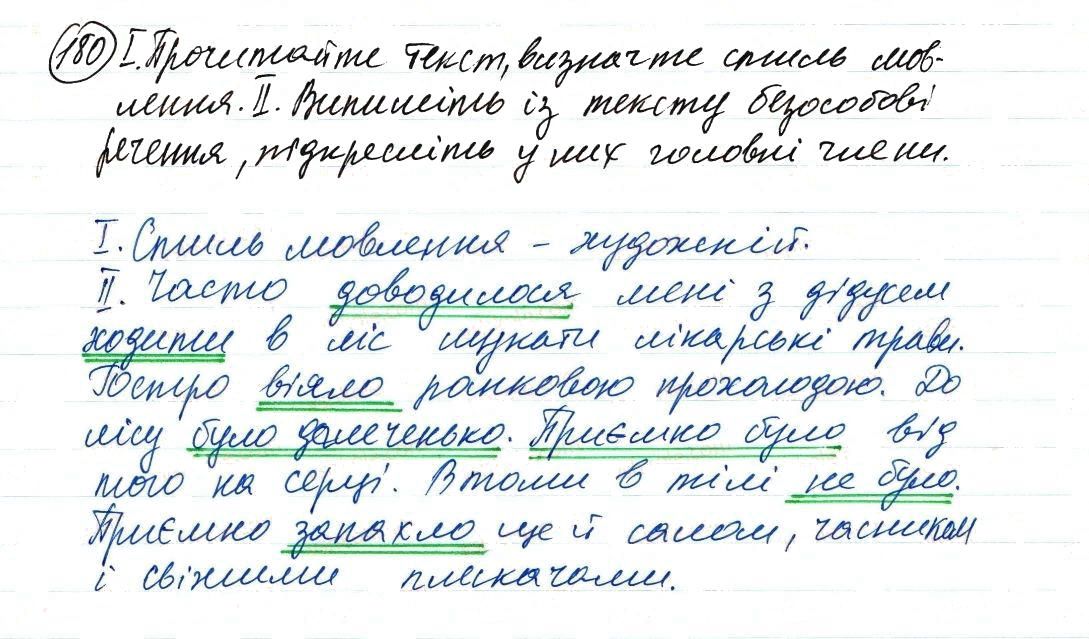 180 I. Прочитайте текст, визначте стиль мов-
лення. II. Випишіть із тексту безособові
речення, підкресліть у них головні члени.
I. Стиль мовлення – художній.
II. Часто доводилося мені з дідусем
ходити в ліс шукати лікарські трави.
Гостро віяло ранковою прохолодою. До
лісу було далеченько. Приємно було від
того на серці. Втоми в тілі не було.
Приємно запахло ще й салом, часником
і свіжими плескачами.